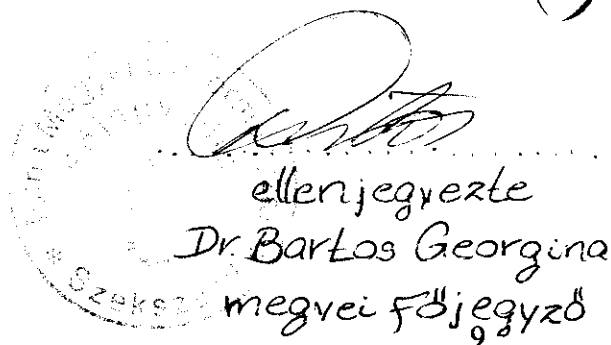 ellenjegyezte
Dr. Bartos Georgina
megyei Főjegyző
Szeksz